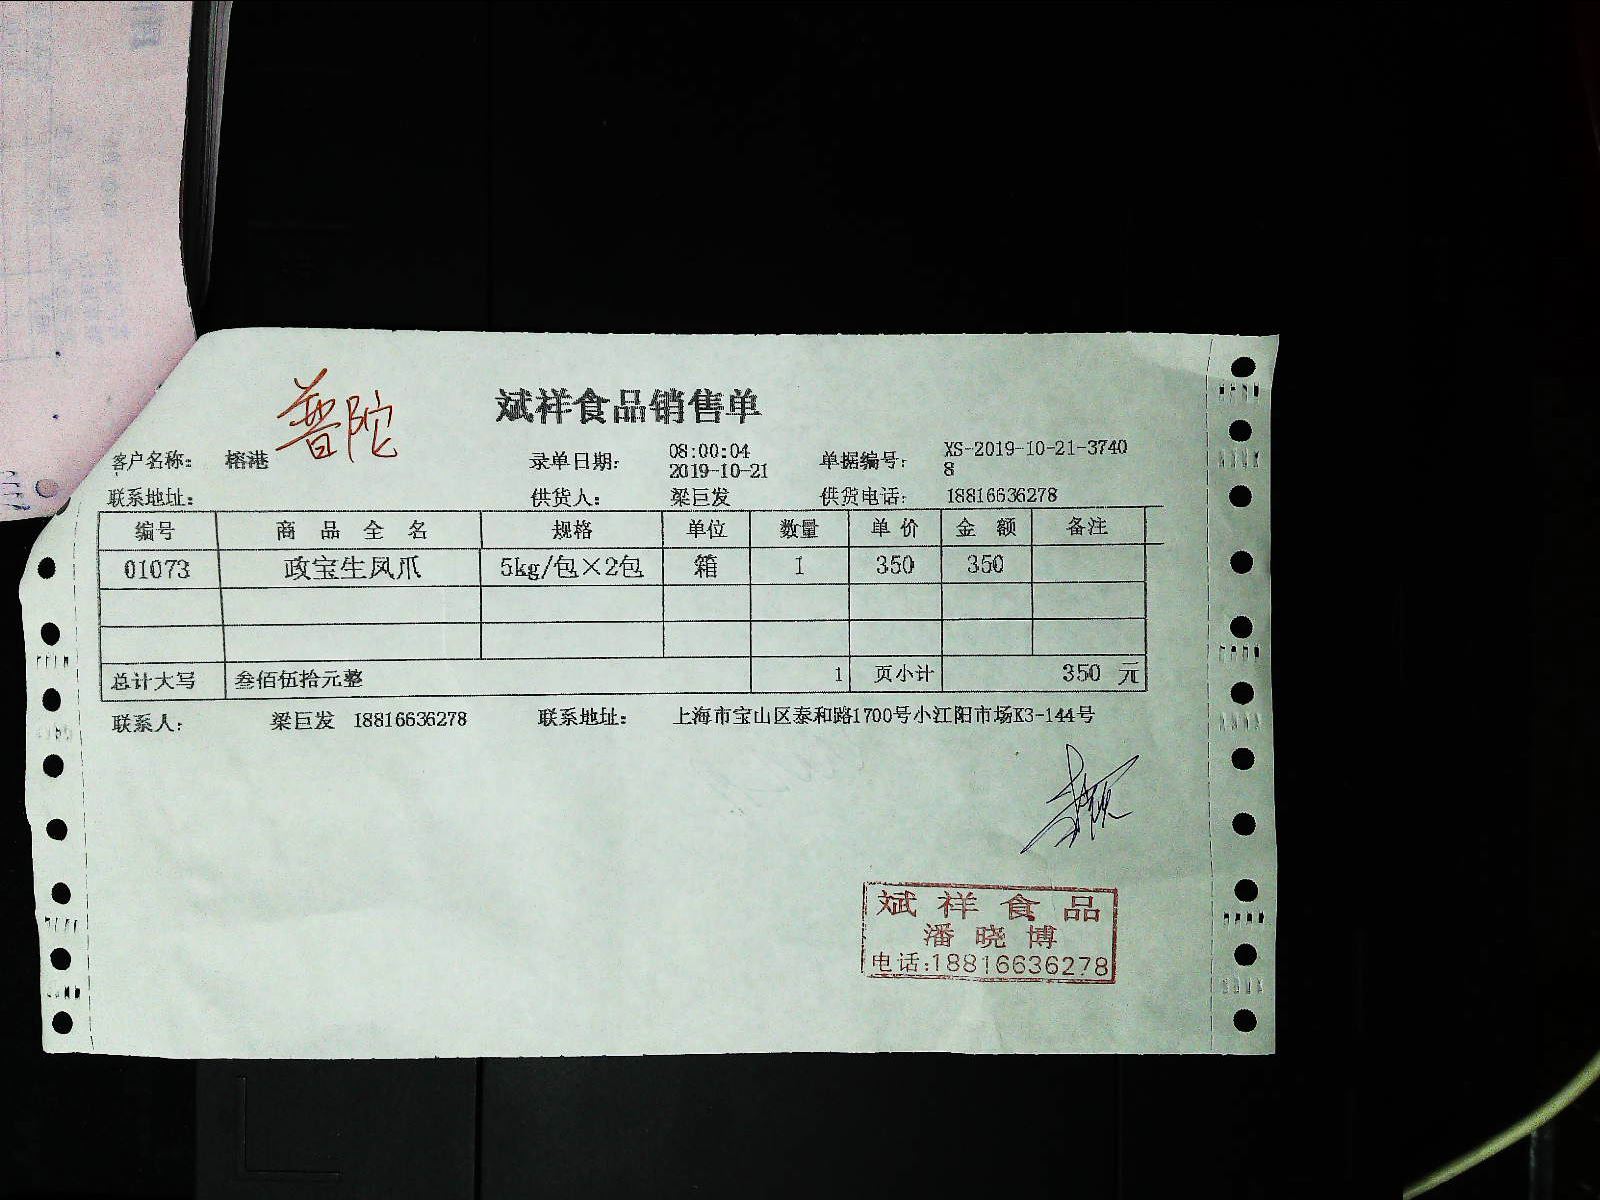 普陀
斌祥食品销售单
客户名称： 榕港 录单日期： 08:00:04 2019-10-21 单据编号： XS-2019-10-21-37408
联系地址： 供货人： 梁巨发 供货电话： 18816636278
编号 商品全名 规格 单位 数量 单价 金额 备注
01073 政宝生凤爪 5kg/包×2包 箱 1 350 350
总计大写 叁佰伍拾元整 1 页小计 350 元
联系人： 梁巨发 18816636278 联系地址： 上海市宝山区泰和路1700号小江阳市场K3-144号
斌祥食品
潘晓博
电话:18816636278